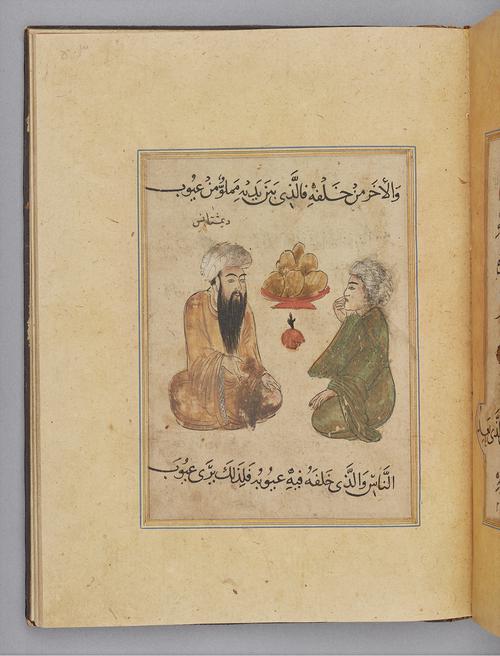 وَالْآخَر مِنْ خَلْفِهِ فَالَّذِي بَيْنَ يَدَيْهِ مَمْلُوٌّ مِنْ عُيُوبِ
النَّاسِ وَالَّذِي خَلْفَهُ فِيهِ عُيُوبُهُ فَلِذَلِكَ يَرَى عُيُوبَ